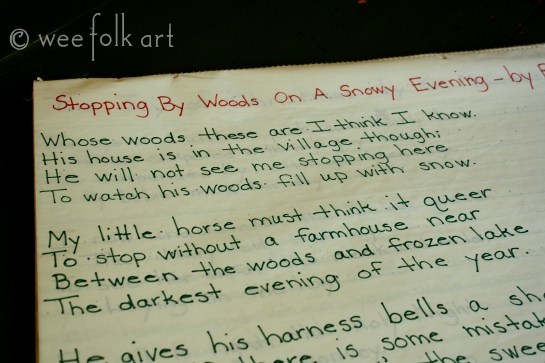 © wee folk art
Stopping By Woods On A Snowy Evening - by
Whose woods these are I think I know.
His house is in the village though;
He will not see me stopping here
To watch his woods fill up with snow.
My little horse must think it queer
To stop without a farmhouse near
Between the woods and frozen lake
The darkest evening of the year.
He gives his harness bells a
there is some
the